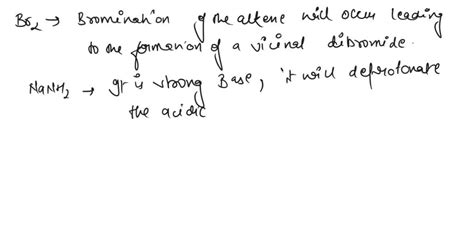 Br2 → Bromination of the alkene will occur leading
to the formation of a vicinal dibromide.
NaNH2 → It is strong Base, it will deprotonate
the acidic